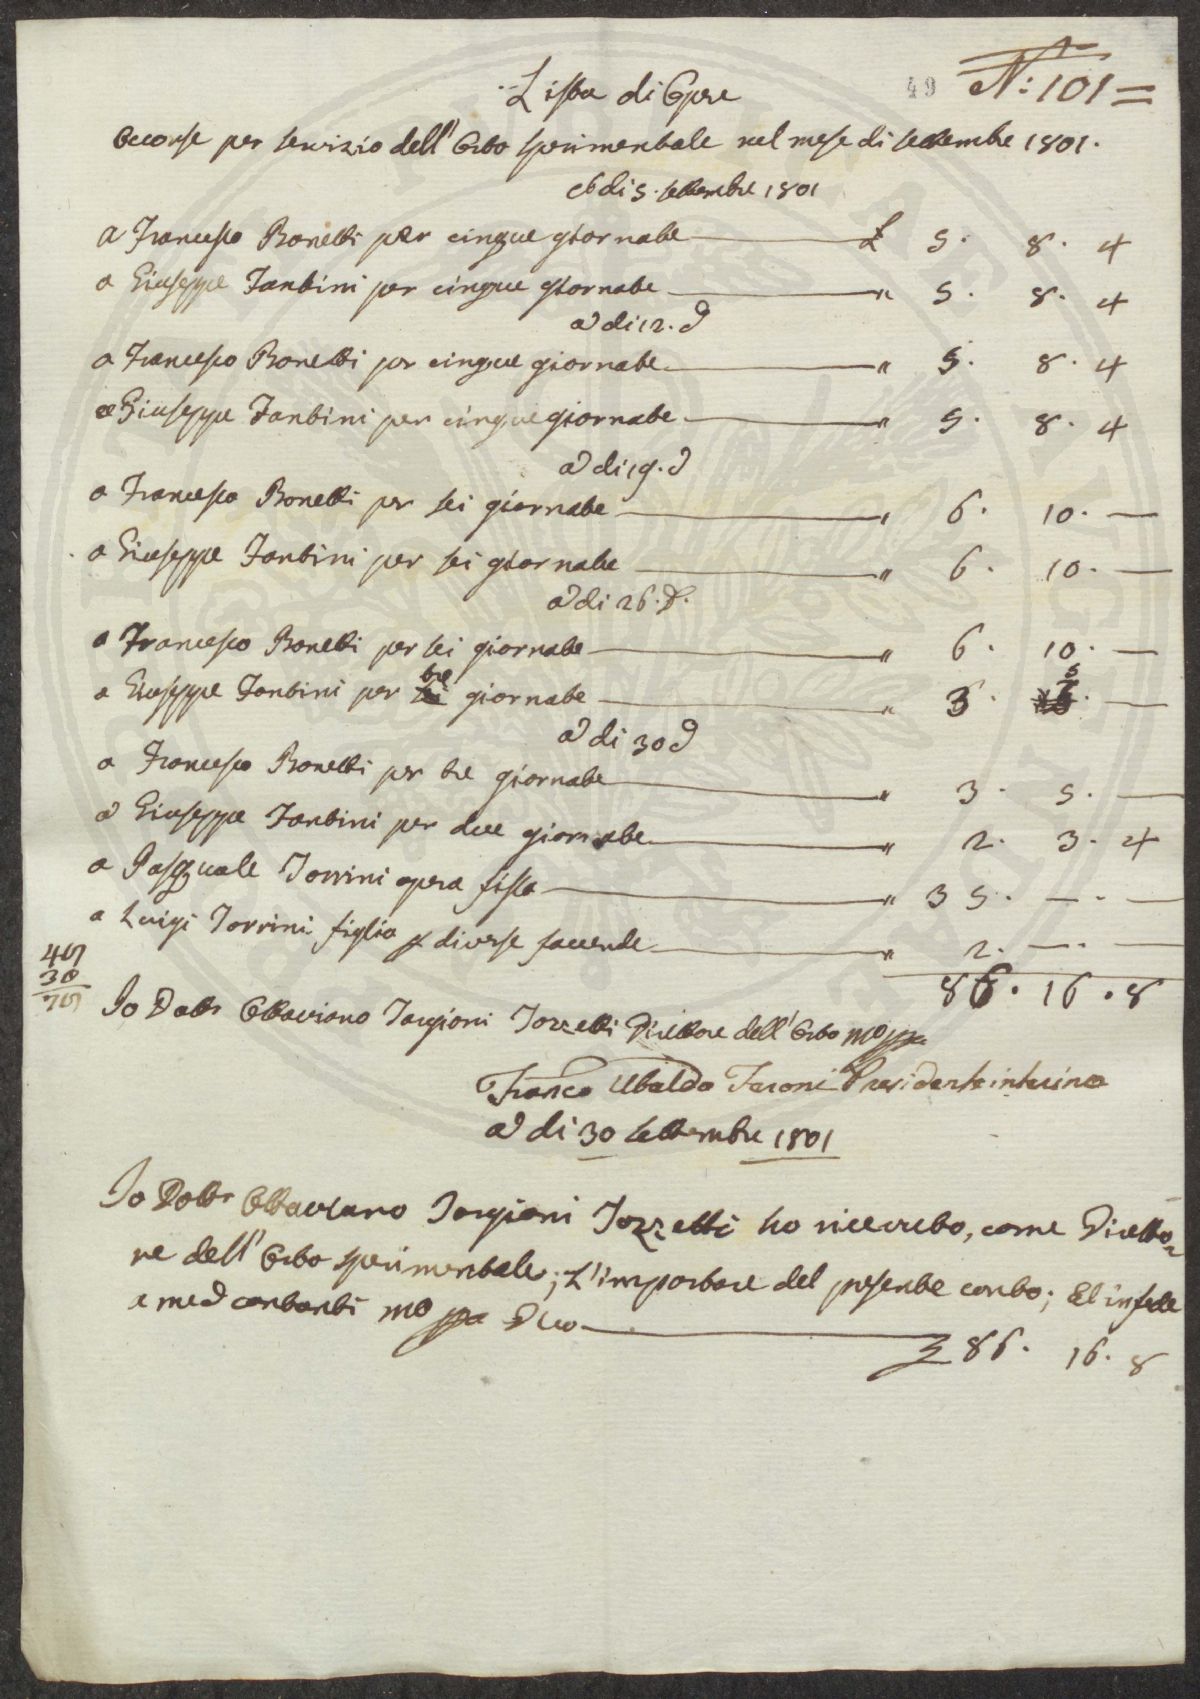 49
N: 101=
Lista di Opre
Occorse per servizio dell' Orto sperimentale nel mese di settembre 1801.
A di 5. settembre 1801
A Francesco Bonetti per cinque giornate £ 5. 8. 4
a Giuseppe Fantini per cinque giornate " 5. 8. 4
a di 12. d
a Francesco Bonetti per cinque giornate " 5. 8. 4
a Giuseppe Fantini per cinque giornate " 5. 8. 4
a di 19. d
a Francesco Bonetti per sei giornate " 6. 10. —
a Giuseppe Fantini per sei giornate " 6. 10. —
a di 26. d.
a Francesco Bonetti per sei giornate " 6. 10. —
a Giuseppe Fantini per tre giornate " 3. 5. —
a di 30 d
a Francesco Bonetti per tre giornate " 3. 5. —
a Giuseppe Fantini per due giornate " 2. 3. 4
a Pasquale Torrini opera fissa " 35. —. —
a Luigi Torrini figlio p diverse faccende " 2. —. —
86. 16. 8
45
30
75
Io Dottr Ottaviano Targioni Tozzetti Direttore dell' Orto mo ppa
Franco Ubaldo Feroni Presidente interino
a di 30 settembre 1801
Io Dottr Ottaviano Targioni Tozzetti ho ricevuto, come Diretto=
re dell' Orto sperimentale; L'importare del presente conto; Ed in fede
a me d contanti mo ppa Dico £ 86. 16. 8